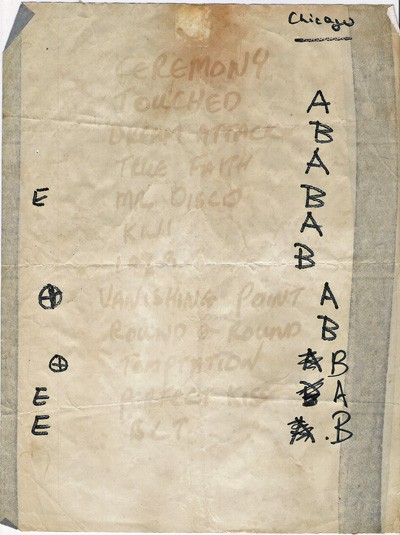 Chicago
CEREMONY
TOUCHED A
DREAM ATTACK B
TRUE FAITH A
E MR. DISCO B
KW1 A
B
⊕ VANISHING POINT A
ROUND & ROUND B
⊕ TEMPTATION A B
E PERFECT KISS B A
E BLT A .B